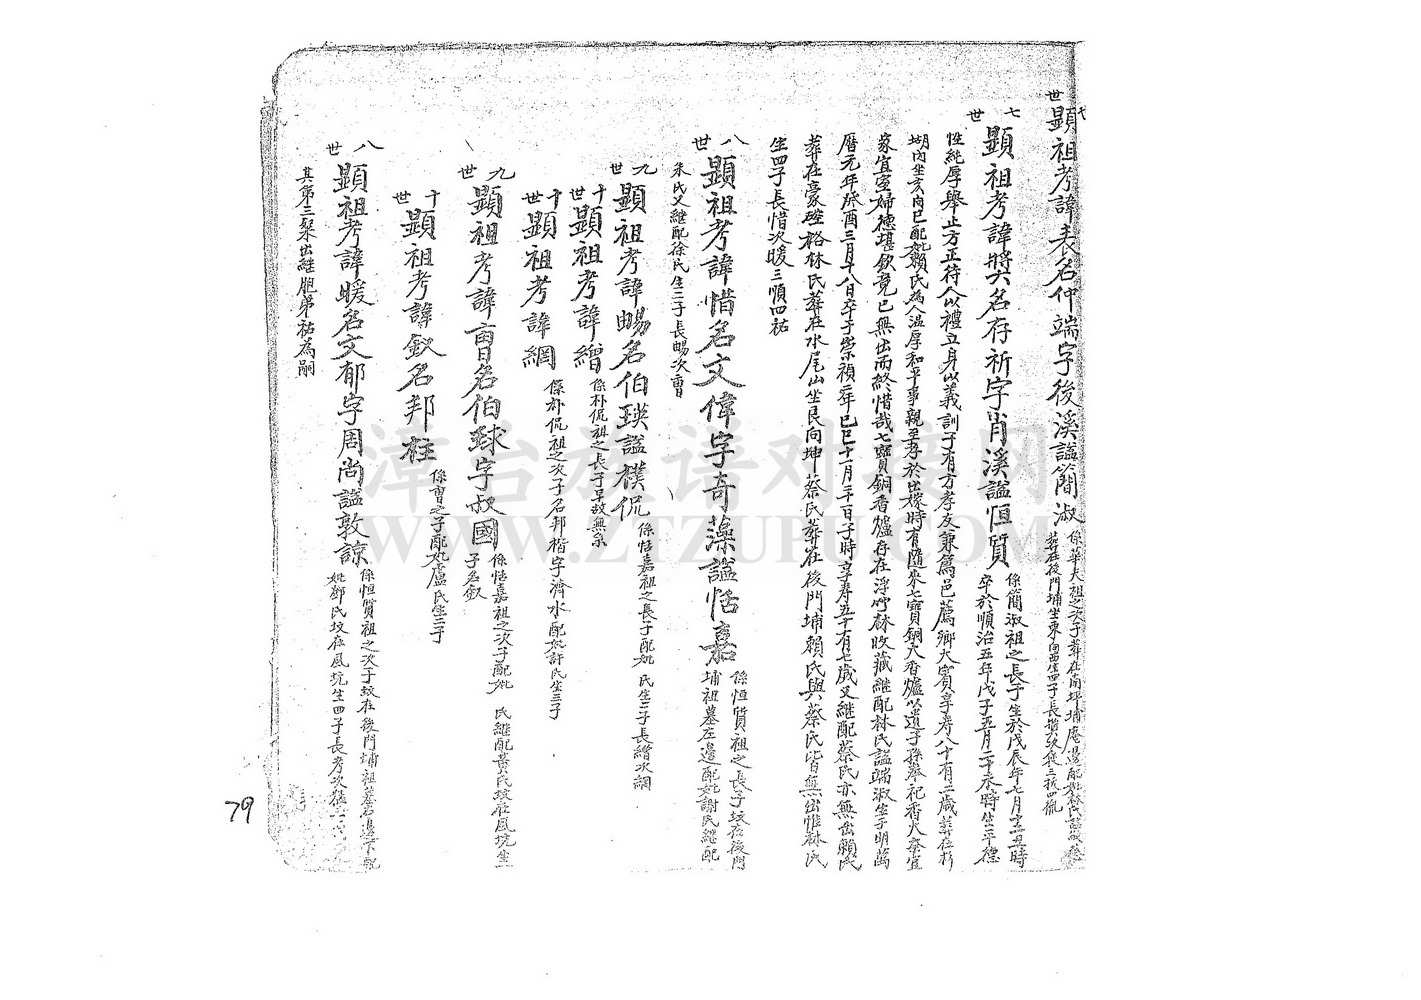 七世
顯祖考諱表名仲端字後溪諡簡淑
係華大祖之次子葬在南坪埔庵邊配妣林氏
葬在後門埔坐東向西生四子長
七世
顯祖考諱將名存祈字肖溪諡恒質
係簡淑祖之長子生於戊辰年七月
卒於順治五年戊子五月二十未時生平德
性純厚舉止方正待人以禮立身以義訓子有方孝友兼篤邑薦鄉大賓享壽八十有二歲葬在杉
坳內坐亥向巳配妣賴氏為人溫厚和平事親至孝於出嫁時有隨來七寶銅大香爐以遺子孫奉祀香火蔡宜
家宜室婦德堪欽竟已無出而終惜哉七寶銅香爐存在浮坪林收藏繼配林氏諡端淑生于明萬
曆元年癸酉三月十八日卒于崇禎二年己巳十一月二十日子時享壽五十有七歲又繼配蔡氏亦無出賴氏
葬在豪磴格林氏葬在水尾山坐艮向坤蔡氏葬在後門埔賴氏與蔡氏皆無出惟林氏
生四子長惜次暖三順四祐
八世
顯祖考諱惜名文偉字奇藻諡恬嘉
係恒質祖之長子坟在後門
埔祖墓左邊配妣謝氏繼配
朱氏又繼配徐氏生二子長賜次曹
九世
顯祖考諱賜名伯瑛諡樸侃
係恬嘉祖之長子配妣 氏生二子長繒次綱
十世
顯祖考諱繒
係朴侃祖之長子早故無糸
十世
顯祖考諱綱
係朴侃祖之次子名邦楷字濟水配妣許氏生三子
九世
顯祖考諱曹名伯球字叔國
係恬嘉祖之次子配妣 氏繼配黃氏坟在風坑生一
子名釵
十世
顯祖考諱釵名邦柱
係曹之子配妣盧氏生三子
八世
顯祖考諱暖名文郁字周尚諡敦諒
係恒質祖之次子坟在後門埔祖墓右邊下配
妣鄒氏坟在風坑生四子長考次猛三
其第三桼出繼胞弟祐為嗣
79
漳台族谱对接网
WWW.ZTZUPU.COM